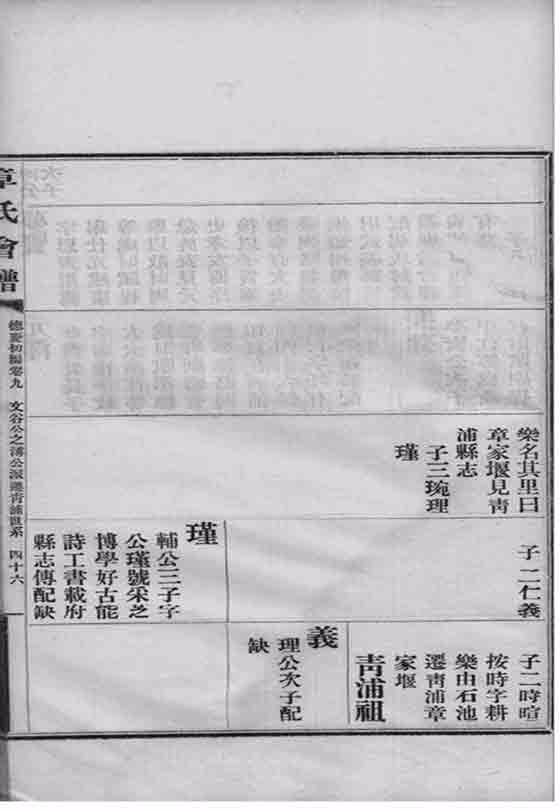 樂名其里曰
章家堰見青
浦縣志
子三琬理
瑾
子二仁義
瑾
輔公三子字
公瑾號采芝
博學好古能
詩工書載府
縣志傳配缺
子二時暄
按時字耕
樂由石池
遷青浦章
家堰
青浦祖
義
理公次子配
缺
章氏會譜
德慶初編卷九
文谷公之清公派遷青浦世系
四十六